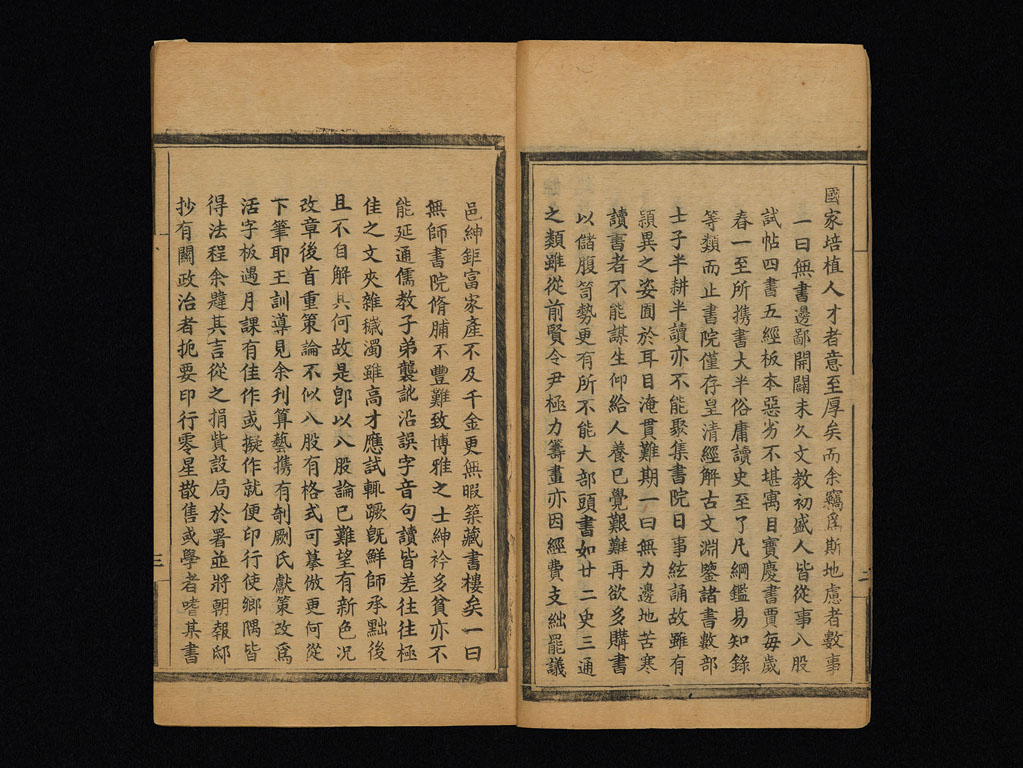 國家培植人才者意至厚矣而余竊爲斯地慮者數事
一曰無書邊鄙開闢未久文教初盛人皆從事八股
試帖四書五經板本惡劣不堪寓目寶慶書賈每歲
春一至所携書大半俗庸讀史至了凡綱鑑易知錄
等類而止書院僅存皇清經解古文淵鑒諸書數部
士子半耕半讀亦不能聚集書院日事絃誦故雖有
穎異之姿囿於耳目淹貫難期一曰無力邊地苦寒
讀書者不能謀生仰給人養已覺艱難再欲多購書
以儲腹笥勢更有所不能大部頭書如廿二史三通
之類雖從前賢令尹極力籌畫亦因經費支絀罷議
二
邑紳鉅富家產不及千金更無暇築藏書樓矣一曰
無師書院脩脯不豐難致博雅之士紳衿多貧亦不
能延通儒教子弟襲訛沿誤字音句讀皆差往往極
佳之文夾雜穢濁雖高才應試輒蹶旣鮮師承黜後
且不自解其何故是卽以八股論已難望有新色况
改章後首重策論不似八股有格式可摹倣更何從
下筆耶王訓導見余刋算藝携有剞劂氏獻策改爲
活字板遇月課有佳作或擬作就便印行使鄉隅皆
得法程余韙其言從之捐貲設局於署並將朝報邸
抄有關政治者扼要印行零星散售或學者嗜其書
三